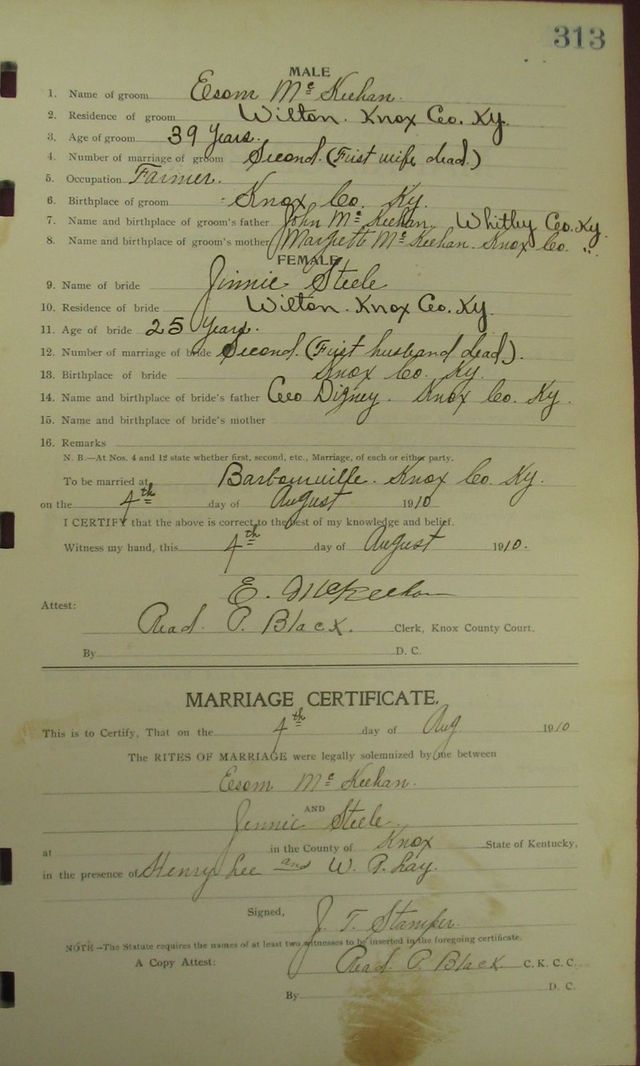 313
MALE
1. Name of groom Esom Mc Keehan.
2. Residence of groom Wilton. Knox Co. Ky.
3. Age of groom 39 Years.
4. Number of marriage of groom Second. (First wife dead.)
5. Occupation Farmer.
6. Birthplace of groom Knox Co. Ky.
7. Name and birthplace of groom's father John Mc Keehan. Whitley Co. Ky.
8. Name and birthplace of groom's mother Margett Mc Keehan. Knox Co. "
FEMALE
9. Name of bride Jinnie Steele
10. Residence of bride Wilton. Knox Co. Ky.
11. Age of bride 25 Years.
12. Number of marriage of bride Second. (First husband dead.)
13. Birthplace of bride Knox Co. Ky.
14. Name and birthplace of bride's father Geo Digney. Knox Co. Ky.
15. Name and birthplace of bride's mother
16. Remarks
N. B.—At Nos. 4 and 12 state whether first, second, etc., Marriage, of each or either party.
To be married at Barbourville. Knox Co. Ky.
on the 4th day of August 1910
I CERTIFY that the above is correct to the best of my knowledge and belief.
Witness my hand, this 4th day of August 1910.
E. McKeehan
Attest:
Read P. Black. Clerk, Knox County Court.
By D. C.
MARRIAGE CERTIFICATE.
This is to Certify, That on the 4th day of Aug 1910
The RITES OF MARRIAGE were legally solemnized by me between
Esom Mc Keehan.
AND
Jennie Steele
at in the County of Knox State of Kentucky,
in the presence of Henry Lee and W. P. Lay.
Signed, J. T. Stamper.
NOTE—The Statute requires the names of at least two witnesses to be inserted in the foregoing certificate.
A Copy Attest: Read P. Black C. K. C. C.
By D. C.